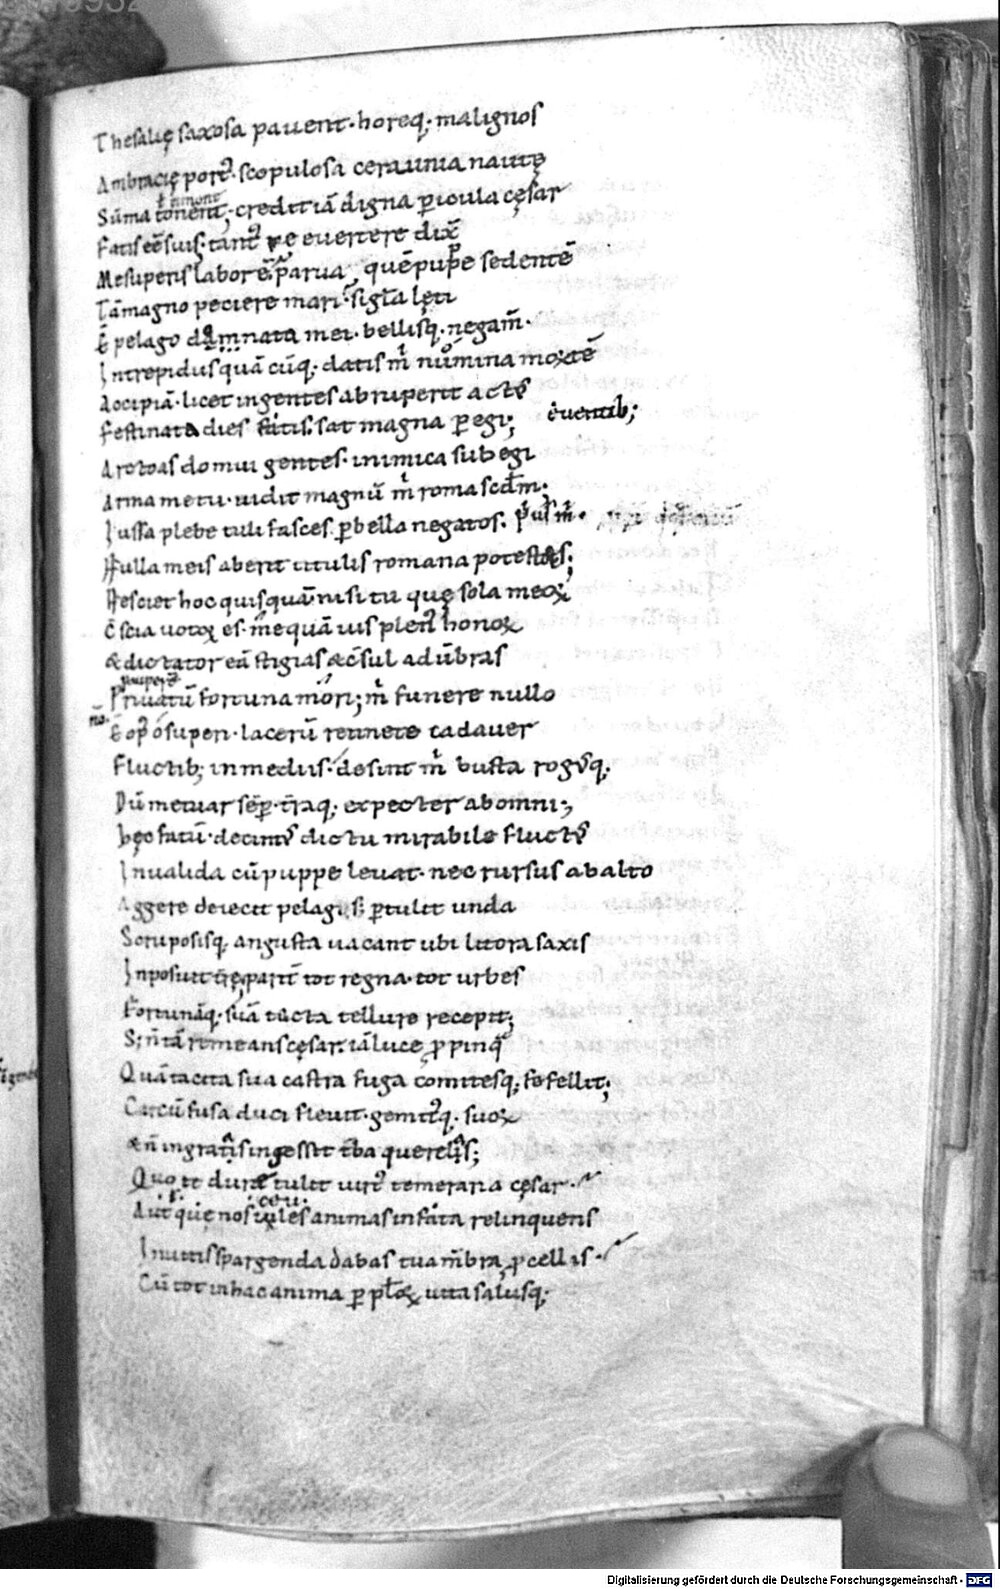 Thesalię saxosa pauent· horeq; malignos
Ambracię port᷒· scopulosa ceraunia nautę
Sūma tonent; credit iā digna ꝑicula cęsar
Fatis eē suis· tant᷒ ne euertere dix̄
Me superis labor ē· parua, quē puppe sedentē
Tā magno peciere mari· si gl̄a lęti
Ē pelago damnata mei· bellisq; negam̄·
Intrepidus quā cūq; datis m̄ numina mortē
Accipiā· licet ingentes abruperit act᷒
Festinata dies fatis· sat magna ꝑegi;
euentib;
Arctoas domui gentes· inimica subegi
Arma metu· uidit magnū m̄ roma scd̄m·
Iussa plebe tuli fasces ꝑ bella negatos·
Nulla meis aberit titulis romana potestas;
Nesciet hoc quisquā· nisi tu quę sola meoꝝ
C̄scia uotoꝝ es· me quāuis plen᷒ honoꝝ
& dictator eā stigias & c̄sul ad ūbras
Priuatū fortuna mori; m̄ funere nullo
Ē op᷒ o superi· lacerū retinete cadauer
Fluctib; in mediis· desint m̄ busta rogusq;
Dū metuar sēꝑ· t̄raq; expecter ab omni;
Hęc fatū· decim᷒ dictu mirabile fluct᷒
Inualida cū puppe leuat· nec rursus ab alto
Aggere deiecit pelagi s; ꝑtulit unda
Scruposisq; angusta uacant ubi litora saxis
Inposuit t̄rę· parit̄ tot regna· tot urbes
Fortunāq; suā tacta tellure recepit;
S; n̄ tā remeans cęsar· iā luce ꝓpinq̄
Quā tacita sua castra fuga comitesq; fefellit;
Circūfusa duci fleuit· gemit᷒q; suoꝝ
& n̄ ingratis ingessit t̄ba querelis;
Quo te dure tulit uirt᷒ temeraria cęsar·
Aut quę nos uiles animas in fata relinquens
Inuitis spargenda dabas tua mēbra ꝓcellis·
Cū tot in hac anima ꝑ pl̄oꝝ uita salusq;
Digitalisierung gefördert durch die Deutsche Forschungsgemeinschaft - DFG